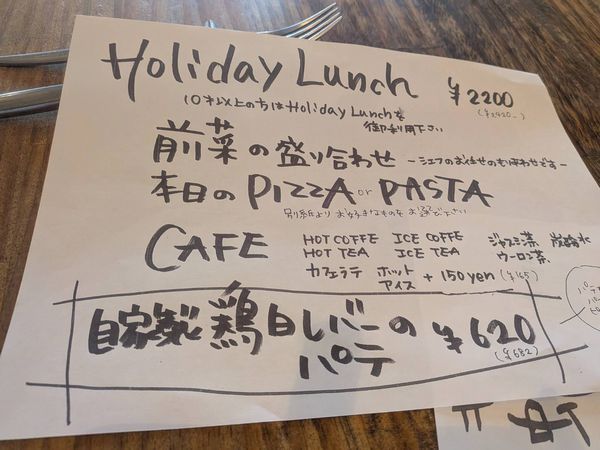 Holiday Lunch ¥2200
(¥2420-)
10才以上の方はHoliday Lunchを
御利用下さい
前菜の盛り合わせ -シェフのお任せのもり合わせです-
本日の PIZZA or PASTA
別紙より お好きなものを お選び下さい
CAFE HOT COFFE ICE COFFE ジャスミン茶 炭酸水
HOT TEA ICE TEA ウーロン茶
カフェラテ ホット
アイス + 150yen (¥165)
自家製 鶏白レバーの ¥620
パテ (¥682)